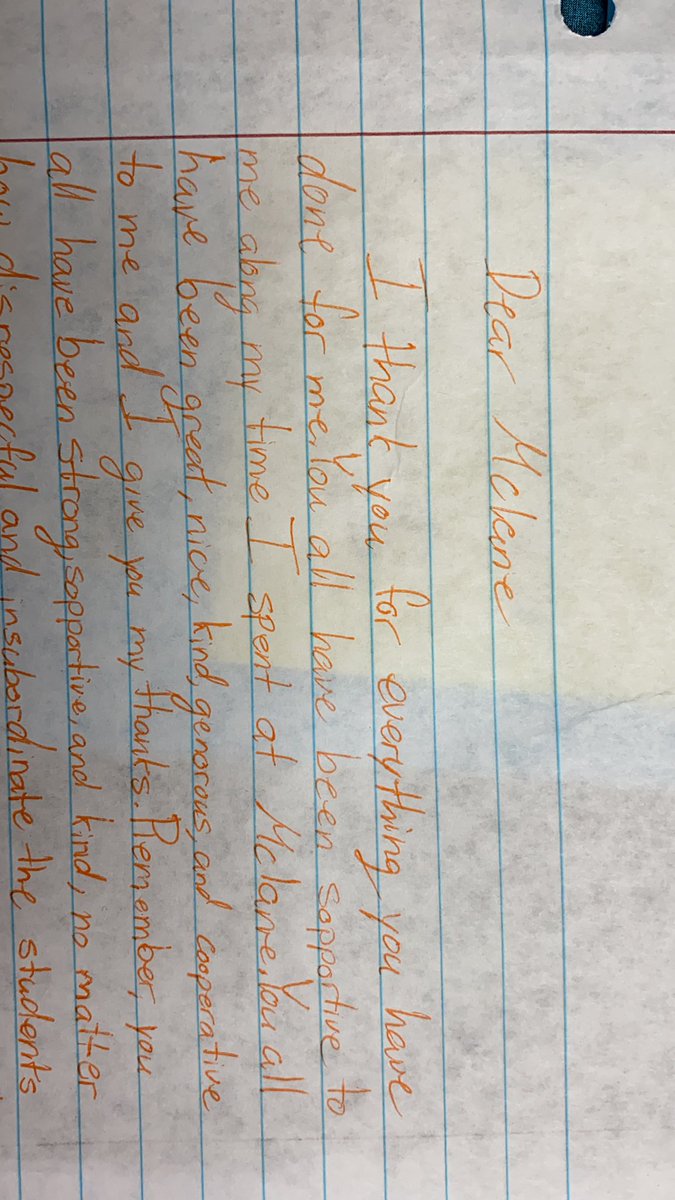 Dear Mclane
I thank you for everything you have
done for me. You all have been sopportive to
me along my time I spent at Mclane. You all
have been great, nice, kind, genorous, and cooperative
to me and I give you my thanks. Remember, you
all have been strong, sopportive, and kind, no matter
how disrespecful and insubordinate the students